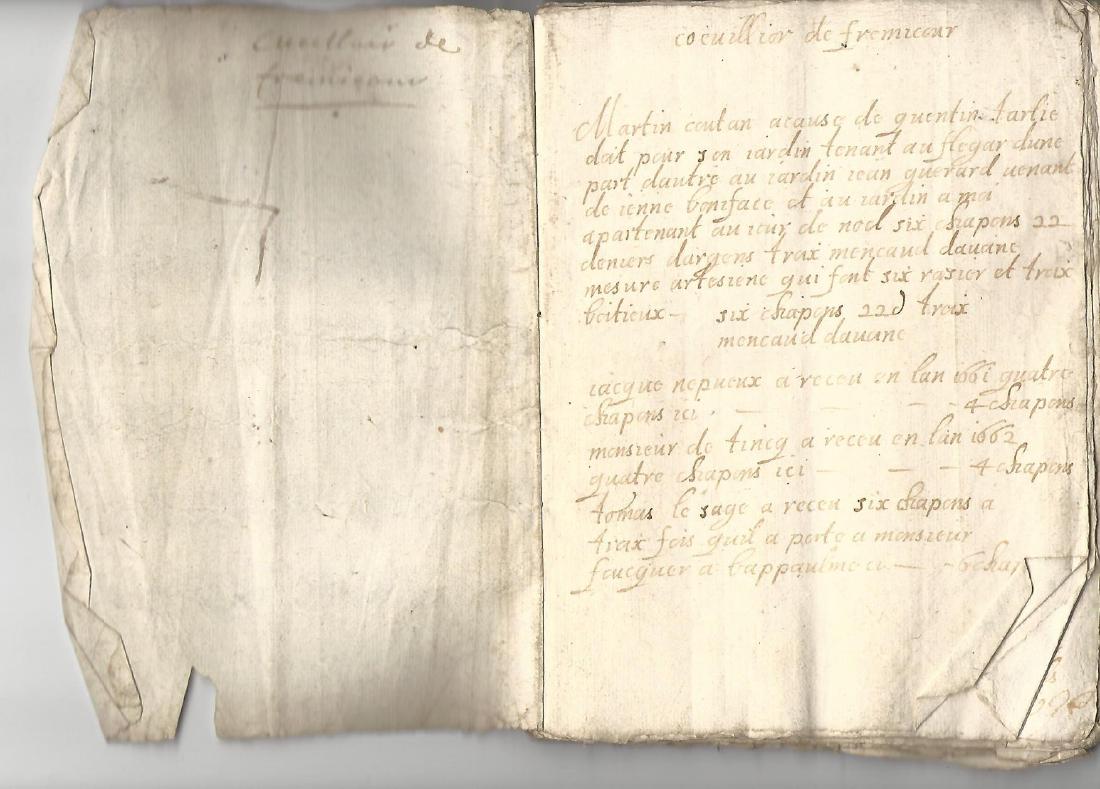 Cueilloir de
fremicour
coeuillior de fremicour
Martin coutan acause de quentin tarlie
doit pour son iardin tenant au flegar dune
part dautre au iardin iean guerard uenant
de ienne boniface et au iardin a moi
apartenant au iour de noel six chapons 22
deniers dargens troix mencaud dauaine
mesure artesiene qui font six rasier et troix
boitieux - six chapons 22d troix
mencaud dauaine
iacque nepueux a receu en lan 1661 quatre
chapons ici - - - - 4 chapons
monsieur de tincq a receu en lan 1662
quatre chapons ici - - - 4 chapons
tomas le sage a receu six chapons a
troix fois quil a porte a monsieur
foucquer a bappaulme - - 6 chap